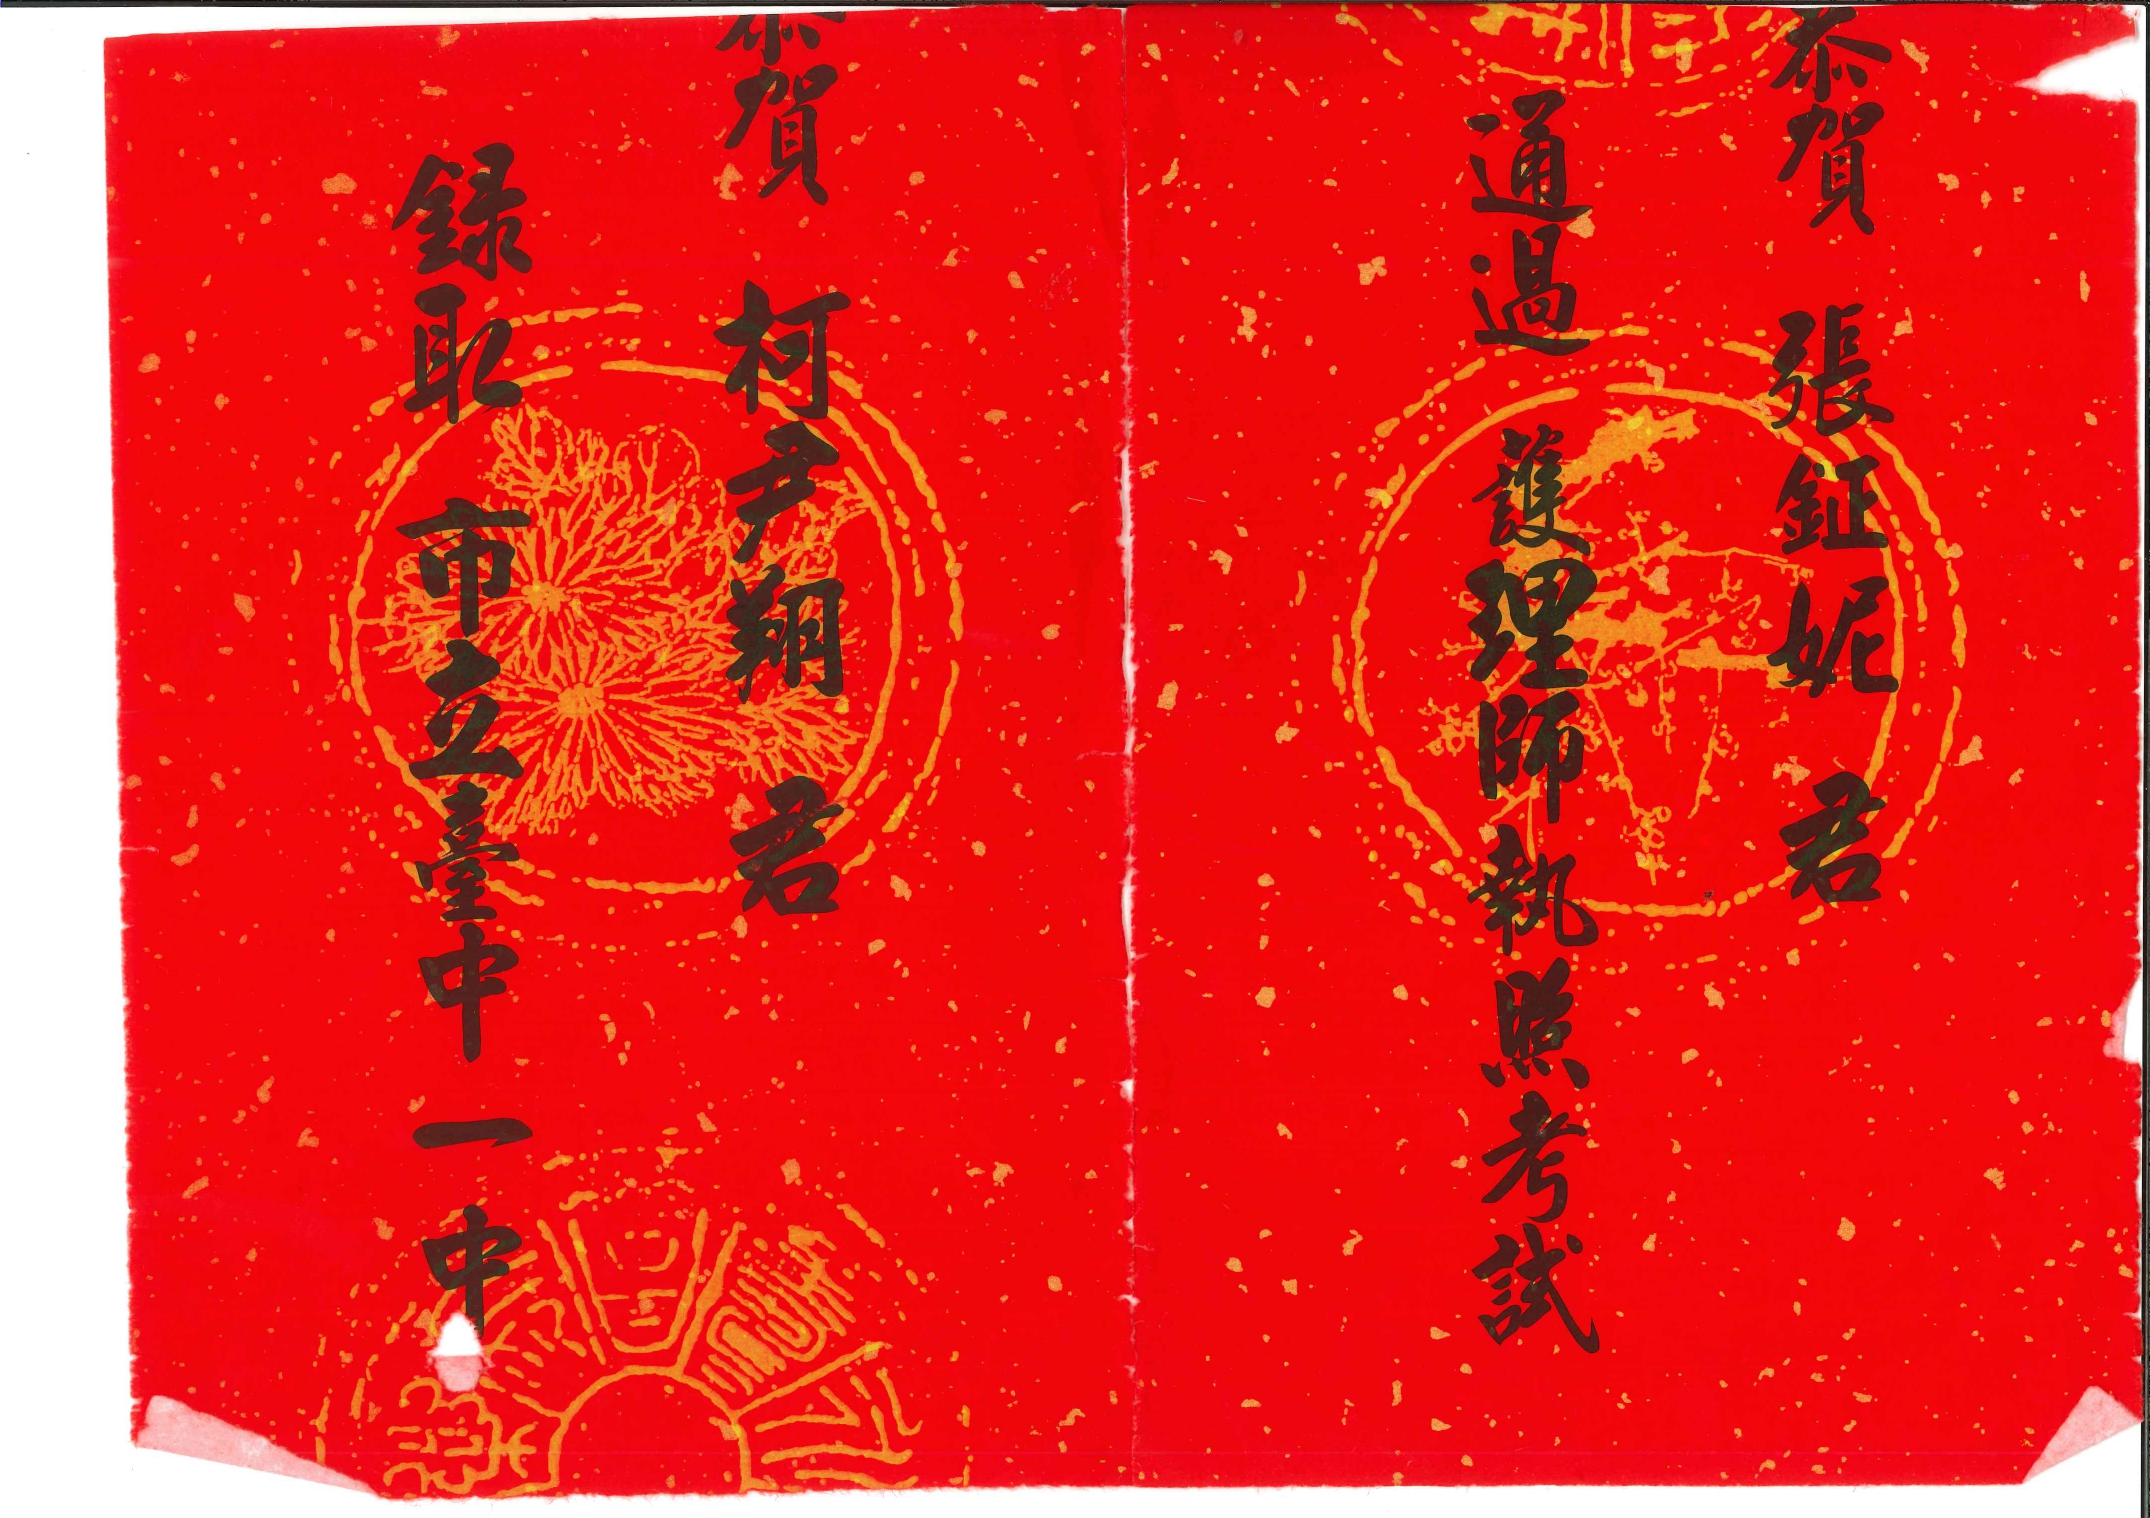 恭賀 張鉦妮 君
通過 護理師執照考試
恭賀 柯尹翔 君
録取 市立臺中一中